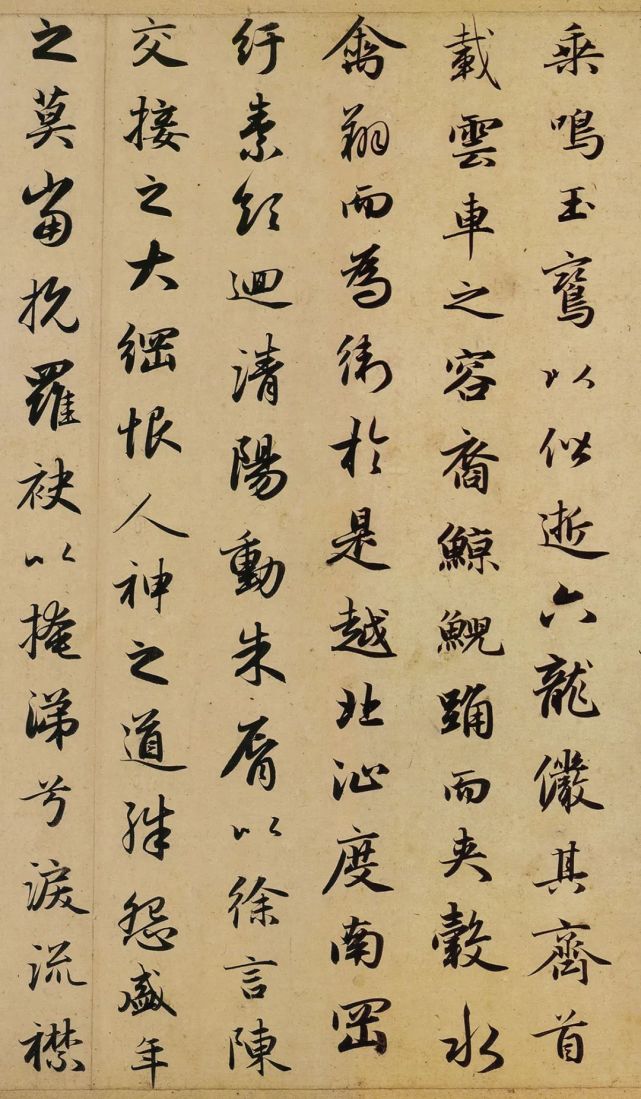 乘鳴玉鸞以偕逝六龍儼其齊首
載雲車之容裔鯨鯢踊而夾轂水
禽翔而為衛於是越北沚度南岡
紆素領迴清陽動朱脣以徐言陳
交接之大綱恨人神之道殊怨盛年
之莫當抗羅袂以掩涕兮淚流襟